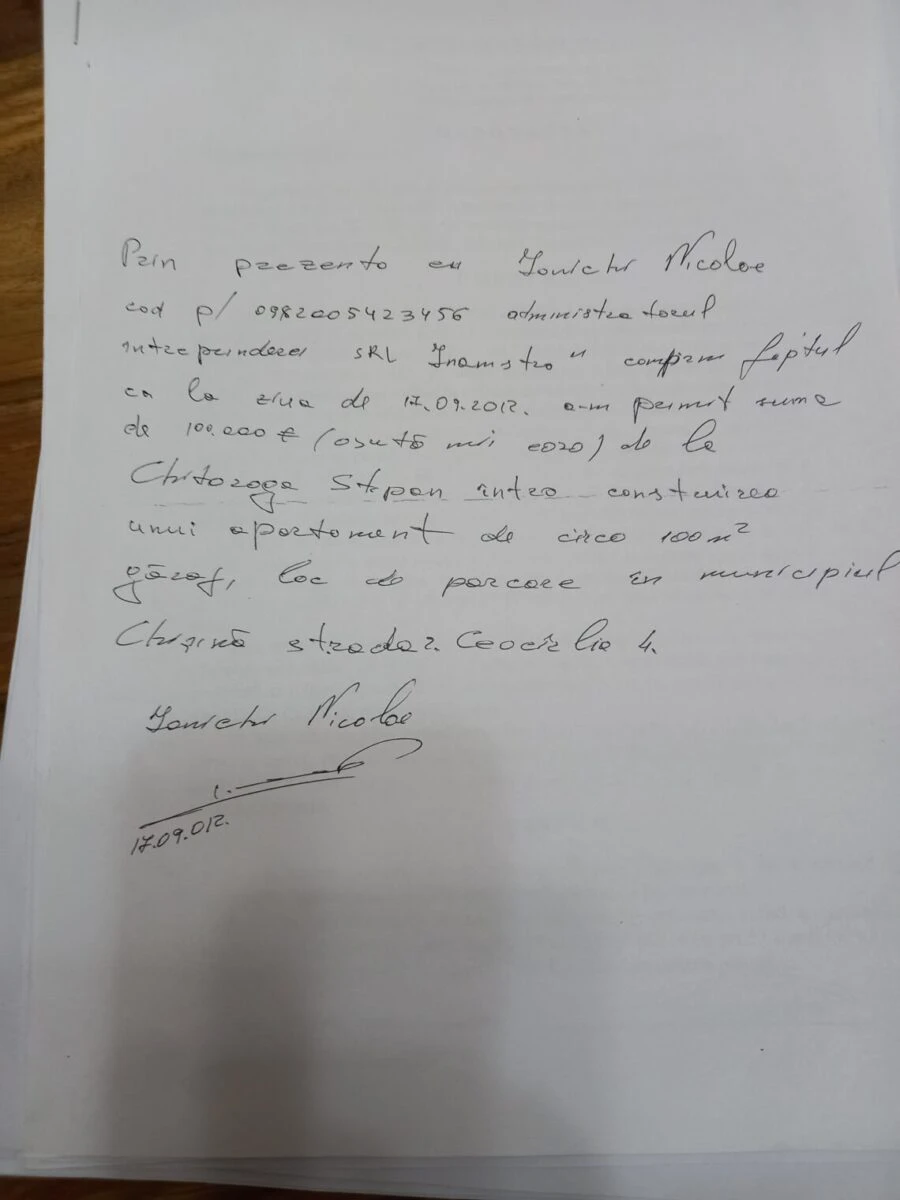 Prin prezenta eu Ionichi Nicolae
cod p/ 0982005423456 administratorul
intreprinderei SRL Inamstro" confirm faptul
ca la ziua de 17.09.2012. a-m permit suma
de 100.000 € (osută mii euro) de la
Chitoroga Stepan intro construirea
unui apartament de circa 100 m²
găraj, loc de parcare în municipiul
Chișină strada Ceocîrlia 4.
Ionichi Nicolae
17.09.012.